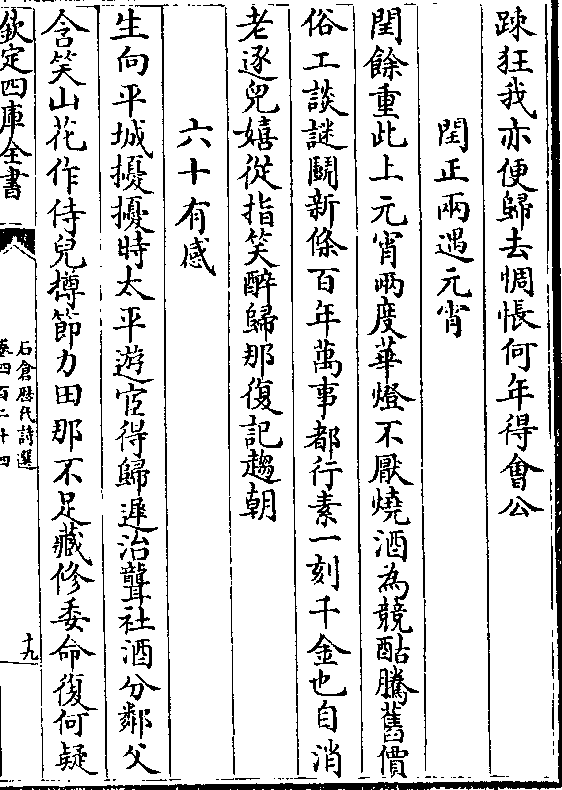 踈狂我亦便歸去惆悵何年得會公
閏正兩遇元宵
閏餘重此上元宵兩度華燈不厭燒酒為競酤騰舊價
俗工談謎鬭新條百年萬事都行素一刻千金也自消
老逐兒嬉從指笑醉歸那復記趨朝
六十有感
生向平城擾擾時太平遊宦得歸遲治聾社酒分鄰父
含笑山花作侍兒樽節力田那不足藏修委命復何疑
欽定四庫全書
石倉歷代詩選
卷四百二十四
十九